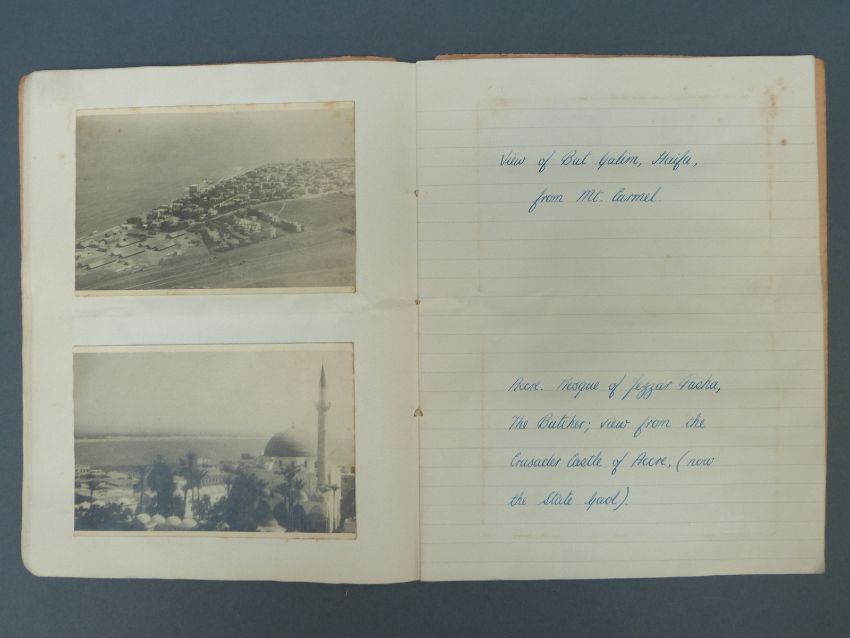 View of Bat Galim, Haifa,
from Mt. Carmel.
Acre. Mosque of Jezzar Pasha,
The Butcher; view from the
Crusader Castle of Acre, (now
the State Gaol).